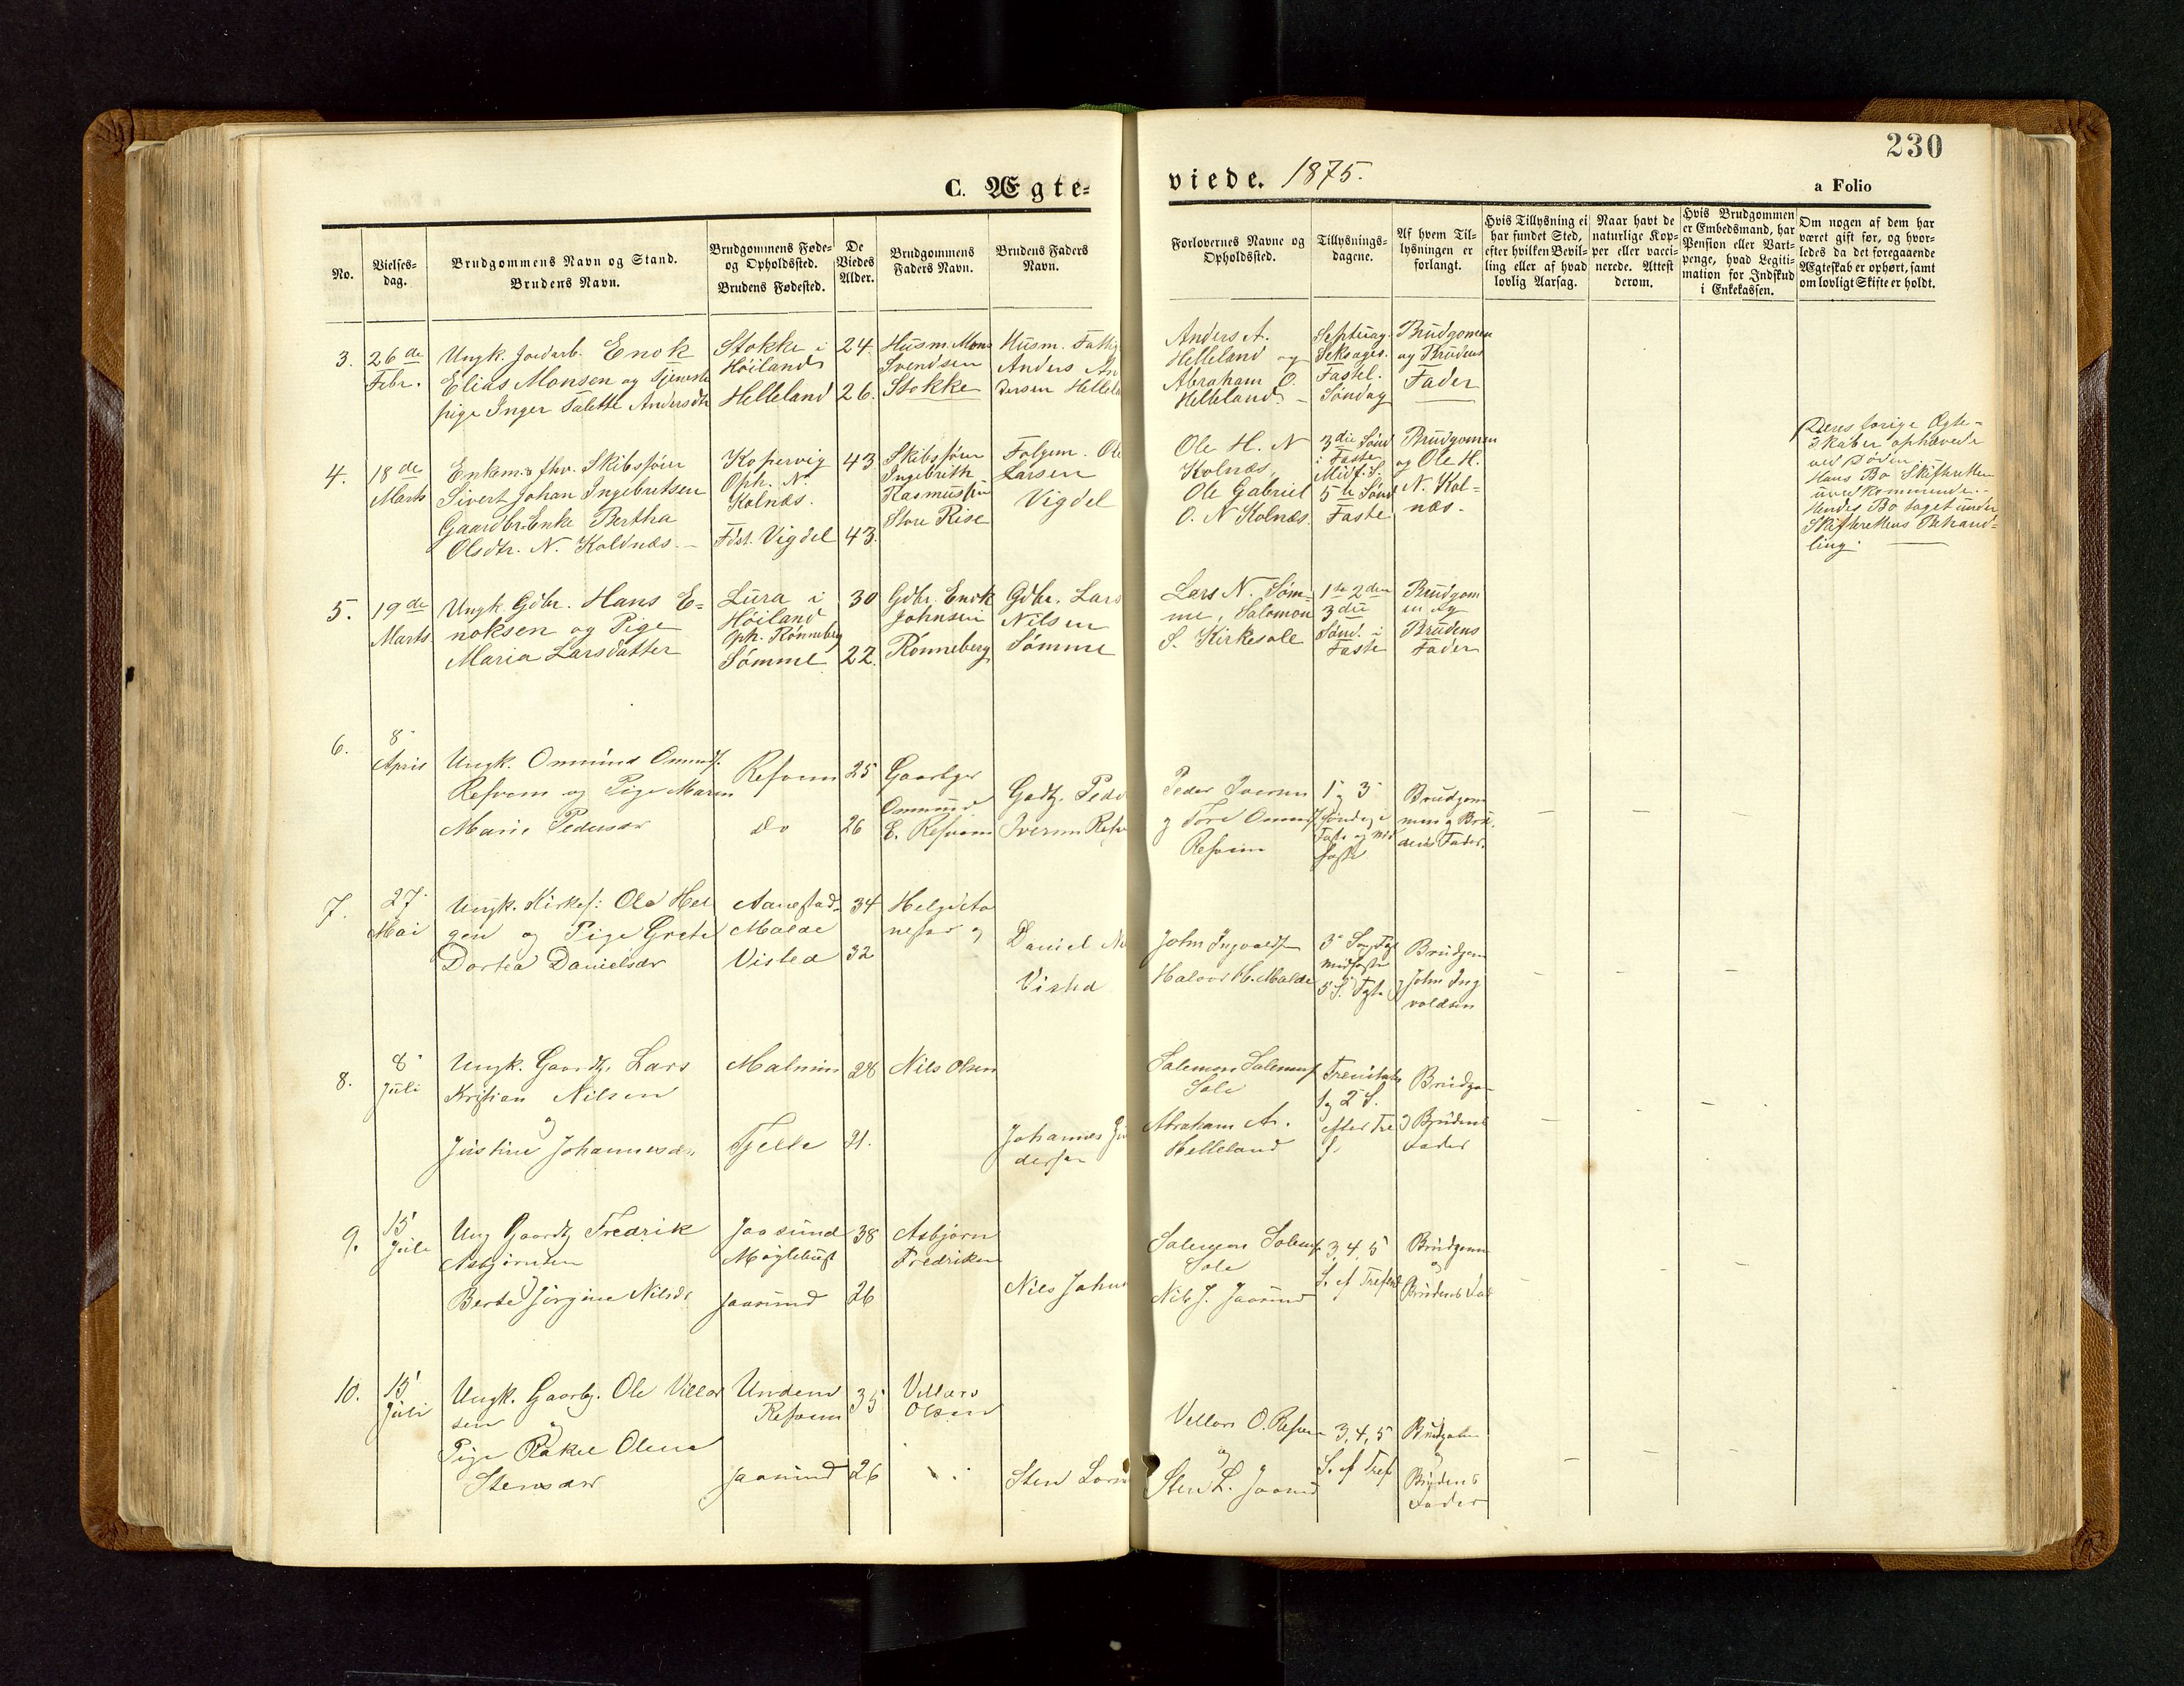 230
C. Ægte-
viede. 1875.
a Folio
No.
Vielses-
dag.
Brudgommens Navn og Stand.
Brudens Navn.
Brudgommens Føde-
og Opholdssted.
Brudens Fødested.
De
Viedes
Alder.
Brudgommens
Faders Navn.
Brudens Faders
Navn.
Forlovernes Navne og
Opholdssted.
Tillysnings-
dagene.
Af hvem Til-
lysningen er
forlangt.
Hvis Tillysning ei
har fundet Sted,
efter hvilken Bevil-
ling eller af hvad
lovlig Aarsag.
Naar havt de
naturlige Kop-
per eller vacci-
nerede. Attest
derom.
Hvis Brudgommen
er Embedsmand, har
Pension eller Vart-
penge, hvad Legiti-
mation for Indskud
i Enkekassen.
Om nogen af dem har
været gift før, og hvor-
ledes da det foregaaende
Ægteskab er ophørt, samt
om lovligt Skifte er holdt.
3.
26de
Febr.
Ungk. Jordarb. Enok
Elias Monsen og Tjeneste
pige Inger Talette Andersdtr
Stokke i
Høiland
Helleland
24.
26.
Husm. Mons
Svendsen
Stokke
Husm.
Anders An
dersen Hellela
Anders A.
Helleland og
Abraham O.
Helleland
Septuag.
Seksages.
Fastel.
Søndag
Brudgomen
og Brudens
Fader
4.
18de
Marts
Enkem. & fhv. Skibsfører
Sivert Johan Ingebretsen
Gaardbr. Enke Bertha
Olsdtr. N. Kolnæs
Kopervig
Oph. N.
Kolnæs.
Fdst. Vigdel
43
43.
Skibsfører
Ingebrith
Rasmussen
Store Rise
Folgem. Ole
Larsen
Vigdel
Ole H. N
Kolnæs,
Ole Gabriel
O. N Kolnæs
3die Sønd
i Faste,
Midf. S.
5te Sønd
Faste
Brudgomen
og Ole H.
N. Kol-
næs.
Deres forige Ægte-
skaber ophævede
ved Døden.
Hans Bo Skifteretten
uvedkommende.
Hendes Bo taget under
Skifterettens Behand-
ling.
5.
19de
Marts
Ungk. Gdbr. Hans E-
noksen og Pige
Maria Larsdatter
Lura i
Høiland
Oph. Rønneberg
Sømme
30
22.
Gdbr. Enok
Johnsen
Rønneberg
Gdbr. Lars
Nilsen
Sømme
Lars N. Søm-
me, Salomon
S. Kirkesole
1ste 2den
3die
Sønd. i
Faste
Brudgom
en og
Brudens
Fader
6.
8
April
Ungk. Ommund Ommunds.
Refsnes og Pige Maren
Marie Pedersdr
do
25
26
Ommund
Peder Iversen
1 og 3
Brudgom
men og Bru
dens Fader.
7.
27
Mai
Ungk. Kirkes: Ole Hel
gen og Pige Grete
Dortea Danielsdr
Aanestad
Malde
Visted
34
32
Daniel
John Ingvaldsen
Halvor H. Malde
Brudgom
og John Ing
valdsen
8.
8
Juli
Ungk. Gaardbr. Lars
Kristian Nilsen
og
Justine Johannesdr.
Malmin
Tjelta
28
21.
Nils Olsen
Johannes
Abraham A.
Helleland
1 og 2 S.
efter Tre
Brudgom
og Brudens
Fader
9.
15
Juli
Ung Gaardb Fredrik
Asbjørnsen
og
Berte Jørgine Nilsdr
Jaasund
Møglebust
Jaasund
38
26
Asbjørn
Fredriksen
Nils Johns
Sole
Nils J. Jaasund
3, 4, 5
S. ef Trefold
Brudgom
og
Brudens Fad
10.
15
Juli
Ungk. Gaardbg. Ole Villas
sen
og
Pige Rakel Olene
Stensdr
Jaasund
35
26
Villas
Olsen
Sten
og
Sten L. Jaasund
3, 4, 5
S. ef Tref
Brudgom
og
Brudens
Fader